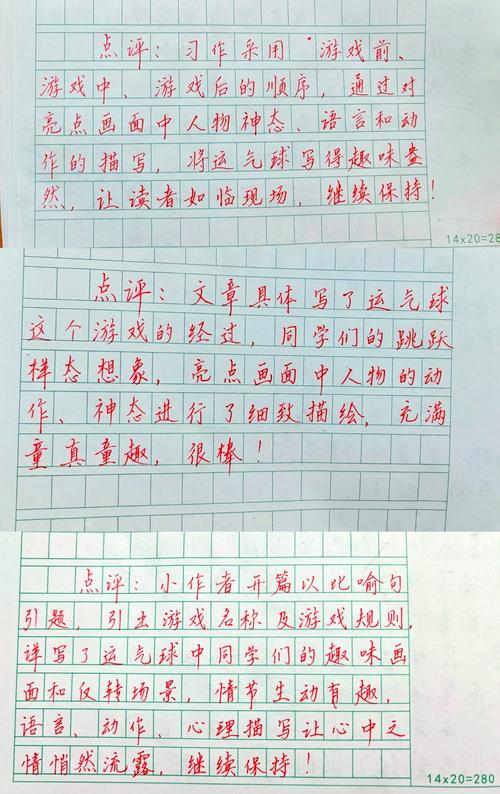 点评：习作采用"游戏前、
游戏中、游戏后的顺序，通过对
亮点画面中人物神态、语言和动
作的描写，将运气球写得趣味盎
然，让读者如临现场，继续保持！
14×20=28
点评：文章具体写了运气球
这个游戏的经过，同学们的跳跃
样态想象，亮点画面中人物的动
作、神态进行了细致描绘，充满
童真童趣，很棒！
点评：小作者开篇以比喻句
引题，引出游戏名称及游戏规则，
详写了运气球中同学们的趣味画
面和反转场景，情节生动有趣，
语言、动作、心理描写让心中之
情悄然流露，继续保持！
14×20=280